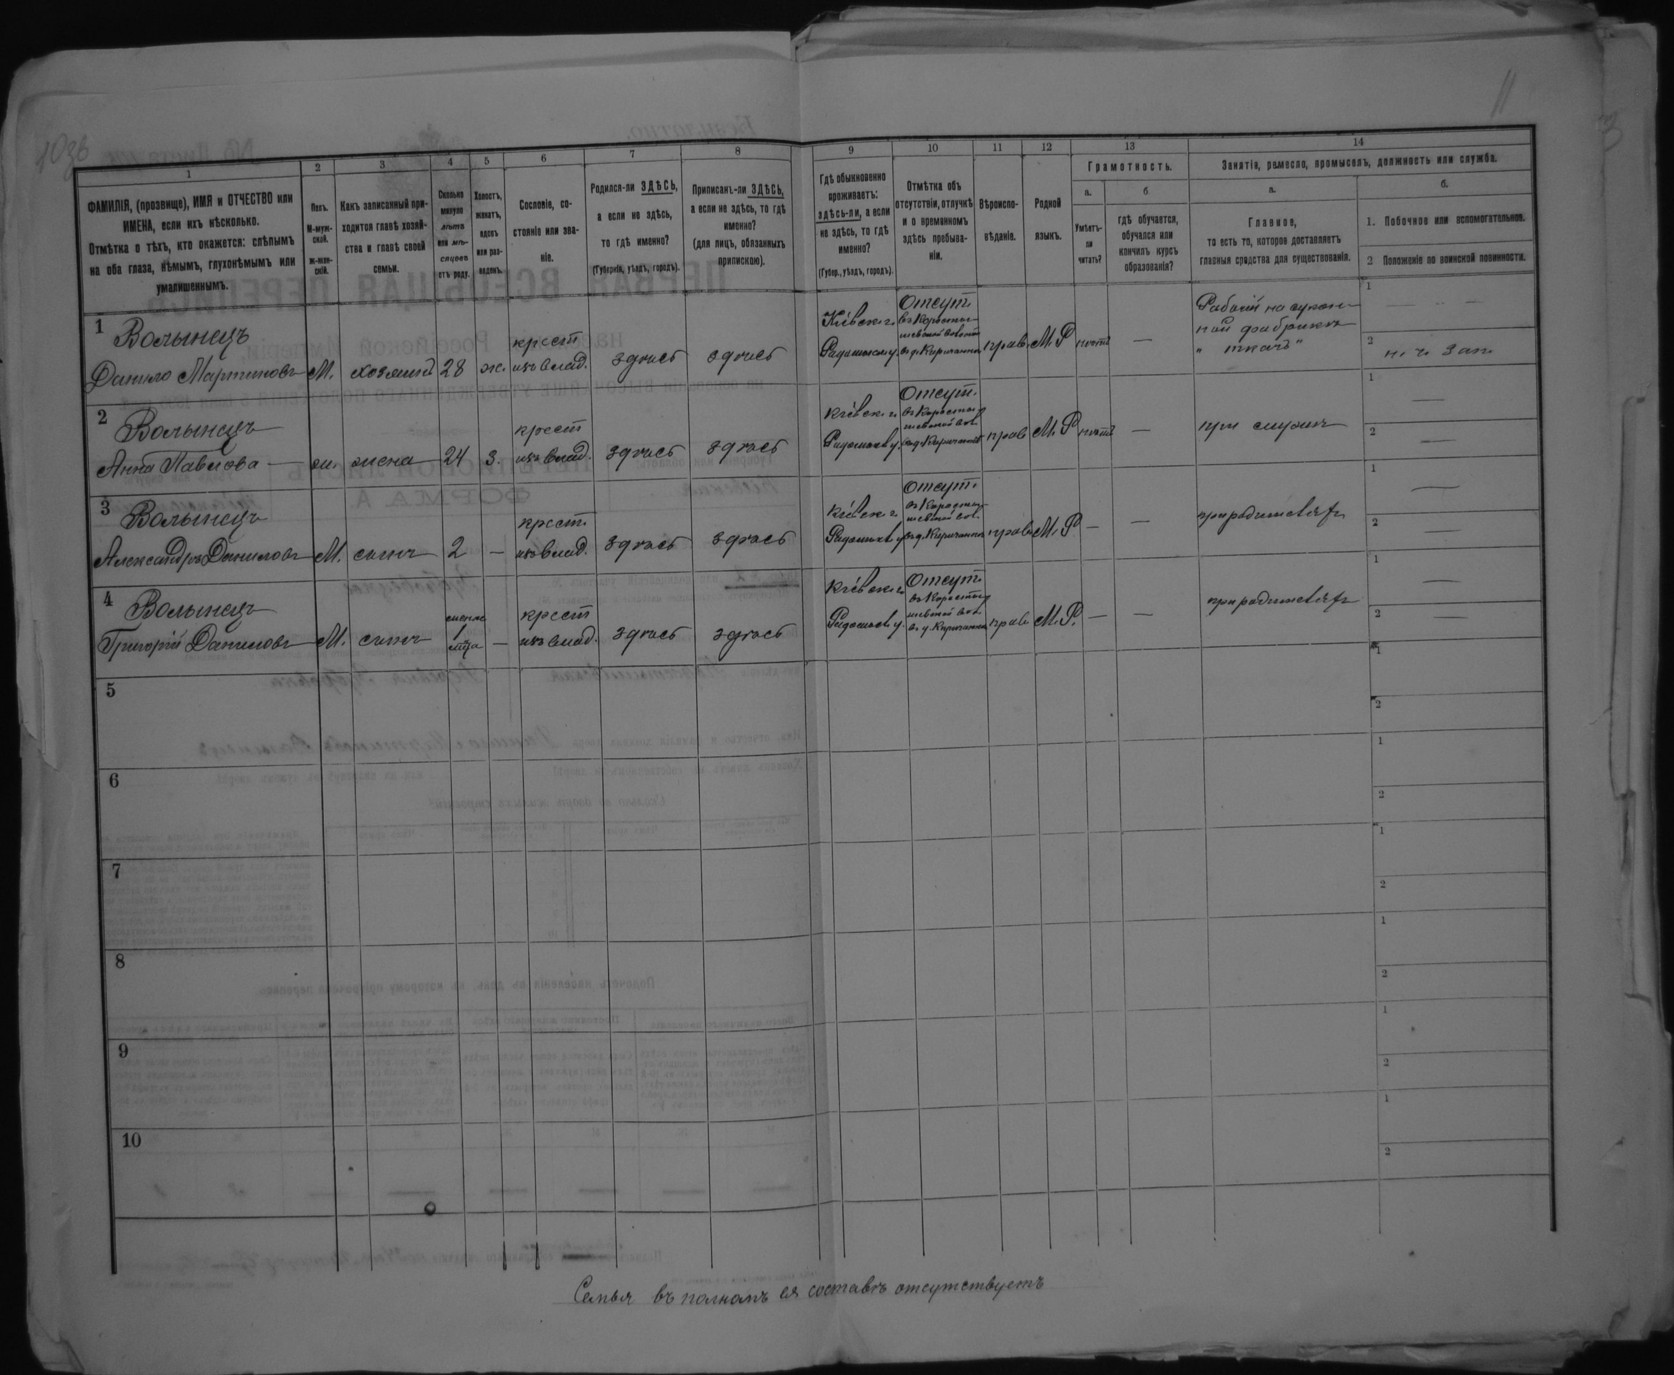 11
1 2 3 4 5 6 7 8 9 10 11 12 13 14
ФАМИЛІЯ, (прозвище), ИМЯ и ОТЧЕСТВО или
ИМЕНА, если ихъ нѣсколько.
Отмѣтка о тѣхъ, кто окажется: слѣпымъ
на оба глаза, нѣмымъ, глухонѣмымъ или
умалишеннымъ.
Полъ.
М-муж-
ской.
ж-жен-
скій.
Какъ записанный при-
ходится главѣ хозяй-
ства и главѣ своей
семьи.
Сколько
минуло
лѣтъ
или мѣ-
сяцевъ
отъ роду.
Холостъ,
женатъ,
вдовъ
или раз-
веденъ.
Сословіе, со-
стояніе или зва-
ніе.
Родился-ли ЗДѢСЬ,
а если не здѣсь,
то гдѣ именно?
(Губернія, уѣздъ, городъ).
Приписанъ-ли ЗДѢСЬ,
а если не здѣсь, то гдѣ
именно?
(для лицъ, обязанныхъ
припискою).
Гдѣ обыкновенно
проживаетъ:
здѣсь-ли, а если
не здѣсь, то гдѣ
именно?
(Губер., уѣздъ, городъ).
Отмѣтка объ
отсутствіи, отлучкѣ
и о временномъ
здѣсь пребыва-
ніи.
Вѣроиспо-
вѣданіе.
Родной
языкъ.
Грамотность.
а.
Умѣетъ-
ли
читать?
б
гдѣ обучается,
обучался или
кончилъ курсъ
образованія?
Занятіе, ремесло, промыселъ, должность или служба.
а.
Главное,
то есть то, которое доставляетъ
главныя средства для существованія.
б.
1. Побочное или вспомогательное.
2 Положеніе по воинской повинности.
1 Волынецъ
Данило Мартиновъ М. хозяинъ 28 ж. крест. изъ влад. здѣсь здѣсь Кіевск. г. Радомыс. у. Отсут. прав. М.Р нѣтъ —
Рабочій на сукон-
ной фабрикѣ
„ ткачъ "
1 — — —
2 н. ч. зап.
2 Волынецъ
Анна Павлова — ж. жена 24 з. крест. изъ влад. здѣсь здѣсь Кіевск. г. Радомыс. у. Отсут. прав. М.Р нѣтъ — при мужѣ
1 —
2 —
3 Волынецъ
Александръ Даниловъ М. сынъ 2 — крест. изъ влад. здѣсь здѣсь Кіевск. г. Радомыс. у. Отсут. прав. М.Р — — при родителяхъ
1 —
2 —
4 Волынецъ
Григорій Даниловъ М. сынъ менѣе 1 м-ца — крест. изъ влад. здѣсь здѣсь Кіевск. г. Радомыс. у. Отсут. прав. М.Р. — — при родителяхъ
1 —
2 —
5
1
2
6
1
2
7
1
2
8
1
2
9
1
2
10
1
2
Семья въ полномъ ея составѣ отсутствуетъ